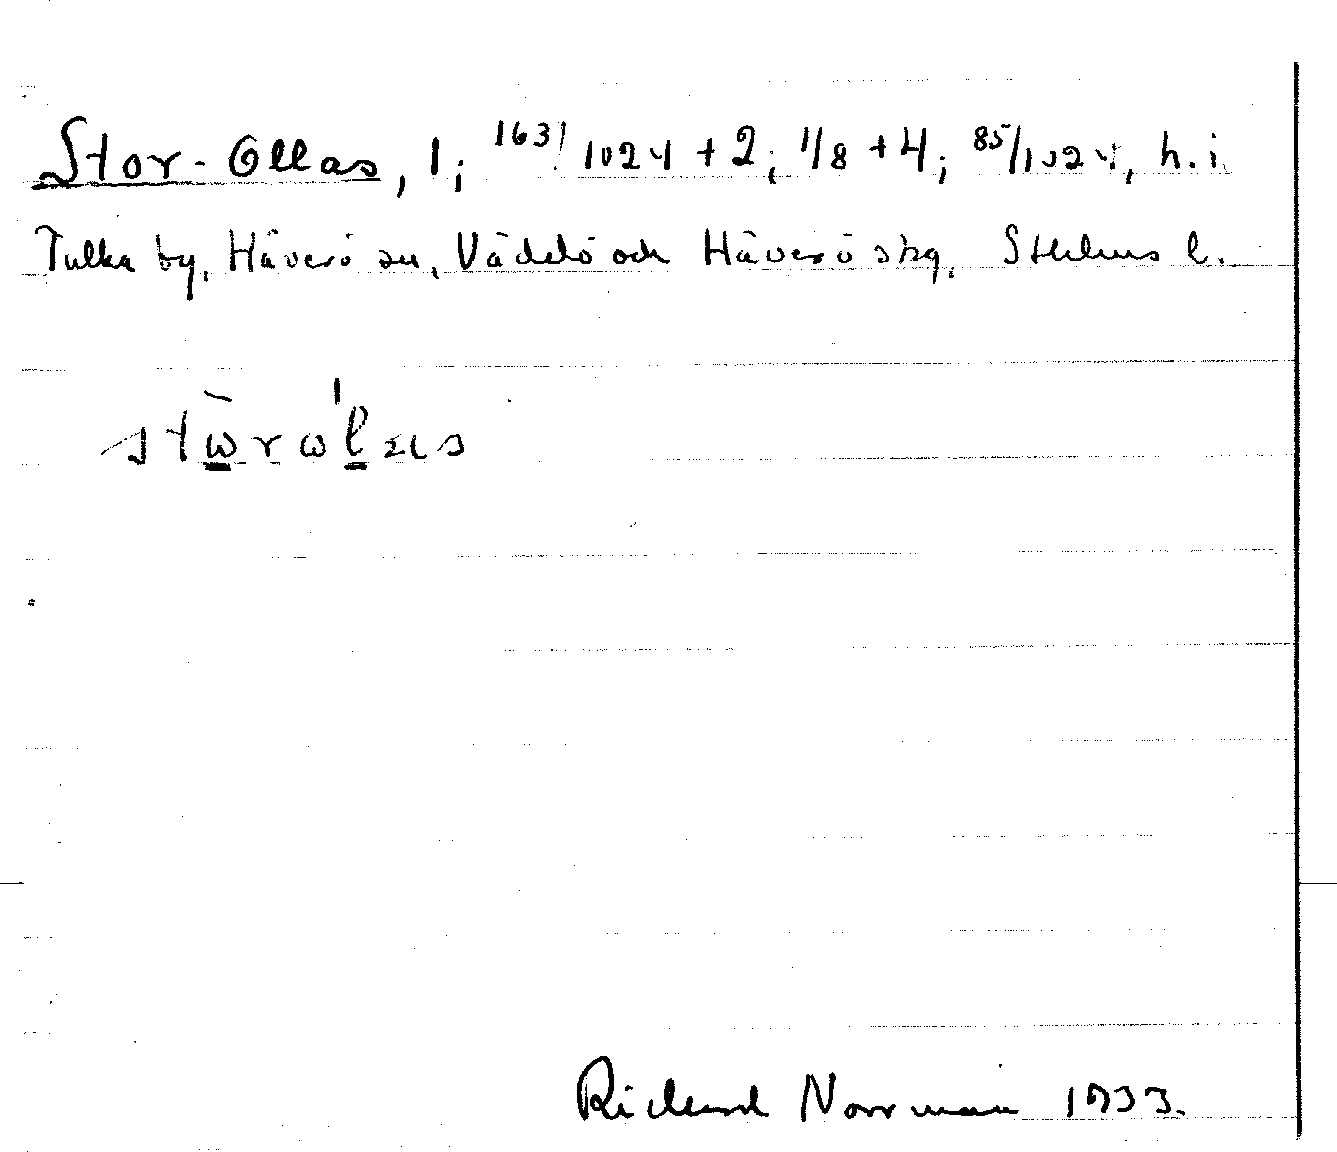 Stor-Ollas, 1; 163/1024 + 2; 1/8 + 4; 85/1024, h. i
Tulka by, Häverö sn, Väddö och Häverö skg, Sthlms l.
Richard Norrman 1933.